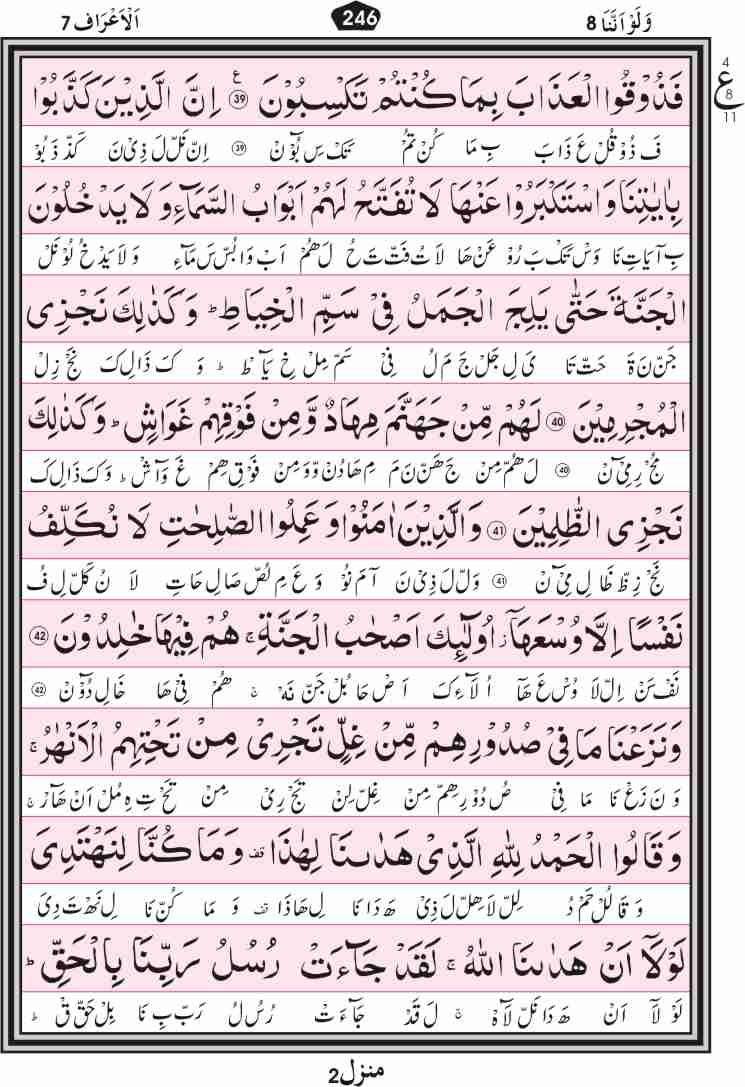 وَلَوْ اَنَّنَا 8 246 اَلْاَعْرَاف 7
فَذُوْقُوا الْعَذَابَ بِمَا كُنْتُمْ تَكْسِبُوْنَ ۝39 ع اِنَّ الَّذِيْنَ كَذَّبُوْا
4 ع 8 11
فَ ذُوْ قُلْ عَ ذَابَ بِ مَا كُنْ تُمْ تَكْ سِ بُوْٓ نْ ۝39 اِنْ نَلْ لَ ذِيْ نَ كَذْ ذَ بُوْ
بِاٰيٰتِنَا وَاسْتَكْبَرُوْا عَنْهَا لَا تُفَتَّحُ لَهُمْ اَبْوَابُ السَّمَآءِ وَ لَا يَدْخُلُوْنَ
بِ آ يَاتِ نَا وَسْ تَكْ بَ رُوْ عَنْ هَا لَا تُ فَتْ تَ حُ لَ هُمْ اَبْ وَا بُسْ سَ مَآءِ وَ لَا يَدْ خُ لُوْ نَلْ
الْجَنَّةَ حَتّٰى يَلِجَ الْجَمَلُ فِيْ سَمِّ الْخِيَاطِ ؕ وَ كَذٰلِكَ نَجْزِى
جَنْ نَ ةَ حَتْ تَا يَ لِ جَلْ جَ مَ لُ فِيْ سَمْ مِلْ خِ يَآ طْ ؕ وَ كَ ذَالِ كَ نَجْ زِلْ
الْمُجْرِمِيْنَ ۝40 لَهُمْ مِّنْ جَهَنَّمَ مِهَادٌ وَّ مِنْ فَوْقِهِمْ غَوَاشٍ ؕ وَ كَذٰلِكَ
مُجْ رِ مِيْٓ نْ ۝40 لَ هُمْ مِنْ جَ هَنْ نَ مَ مِ هَا دُنْ وَ وَ مِنْ فَوْ قِ هِمْ غَ وَآ شْ ؕ وَ كَ ذَالِ كَ
نَجْزِى الظّٰلِمِيْنَ ۝41 وَ الَّذِيْنَ اٰمَنُوْا وَ عَمِلُوا الصّٰلِحٰتِ لَا نُكَلِّفُ
نَجْ زِظْ ظَا لِ مِيْٓ نْ ۝41 وَلْ لَ ذِيْ نَ آ مَ نُوْ وَ عَ مِ لُصْ صَا لِ حَاتِ لَا نُ كَلْ لِ فُ
نَفْسًا اِلَّا وُسْعَهَاۤ ز اُولٰٓئِكَ اَصْحٰبُ الْجَنَّةِ ۚ هُمْ فِيْهَا خٰلِدُوْنَ ۝42
نَفْ سَنْ اِلْ لَا وُسْ عَ هَا اُ لَآءِ كَ اَصْ حَا بُلْ جَنْ نَهْ ۚ هُمْ فِيْ هَا خَا لِ دُوْٓ نْ ۝42
وَ نَزَعْنَا مَا فِيْ صُدُوْرِهِمْ مِّنْ غِلٍّ تَجْرِيْ مِنْ تَحْتِهِمُ الْاَنْهٰرُ ۚ
وَ نَ زَعْ نَا مَا فِيْ صُ دُوْ رِ هِمْ مِنْ غِلْ لِنْ تَجْ رِيْ مِنْ تَحْ تِ هِ مُلْ اَنْ هَآ رْ ۚ
وَ قَالُوا الْحَمْدُ لِلّٰهِ الَّذِيْ هَدٰىنَا لِهٰذَا قف وَ مَا كُنَّا لِنَهْتَدِيَ
وَ قَا لُلْ حَمْ دُ لِلْ لَا هِلْ لَ ذِيْ هَ دَا نَا لِ هَا ذَا قف وَ مَا كُنْ نَا لِ نَهْ تَ دِيَ
لَوْ لَاۤ اَنْ هَدٰىنَا اللّٰهُ ۚ لَقَدْ جَآءَتْ رُسُلُ رَبِّنَا بِالْحَقِّ ؕ
لَوْ لَآ اَنْ هَ دَا نَلْ لَآ هْ ۚ لَ قَدْ جَآءَتْ رُ سُ لُ رَبْ بِ نَا بِلْ حَقْ قْ ؕ
منزل2